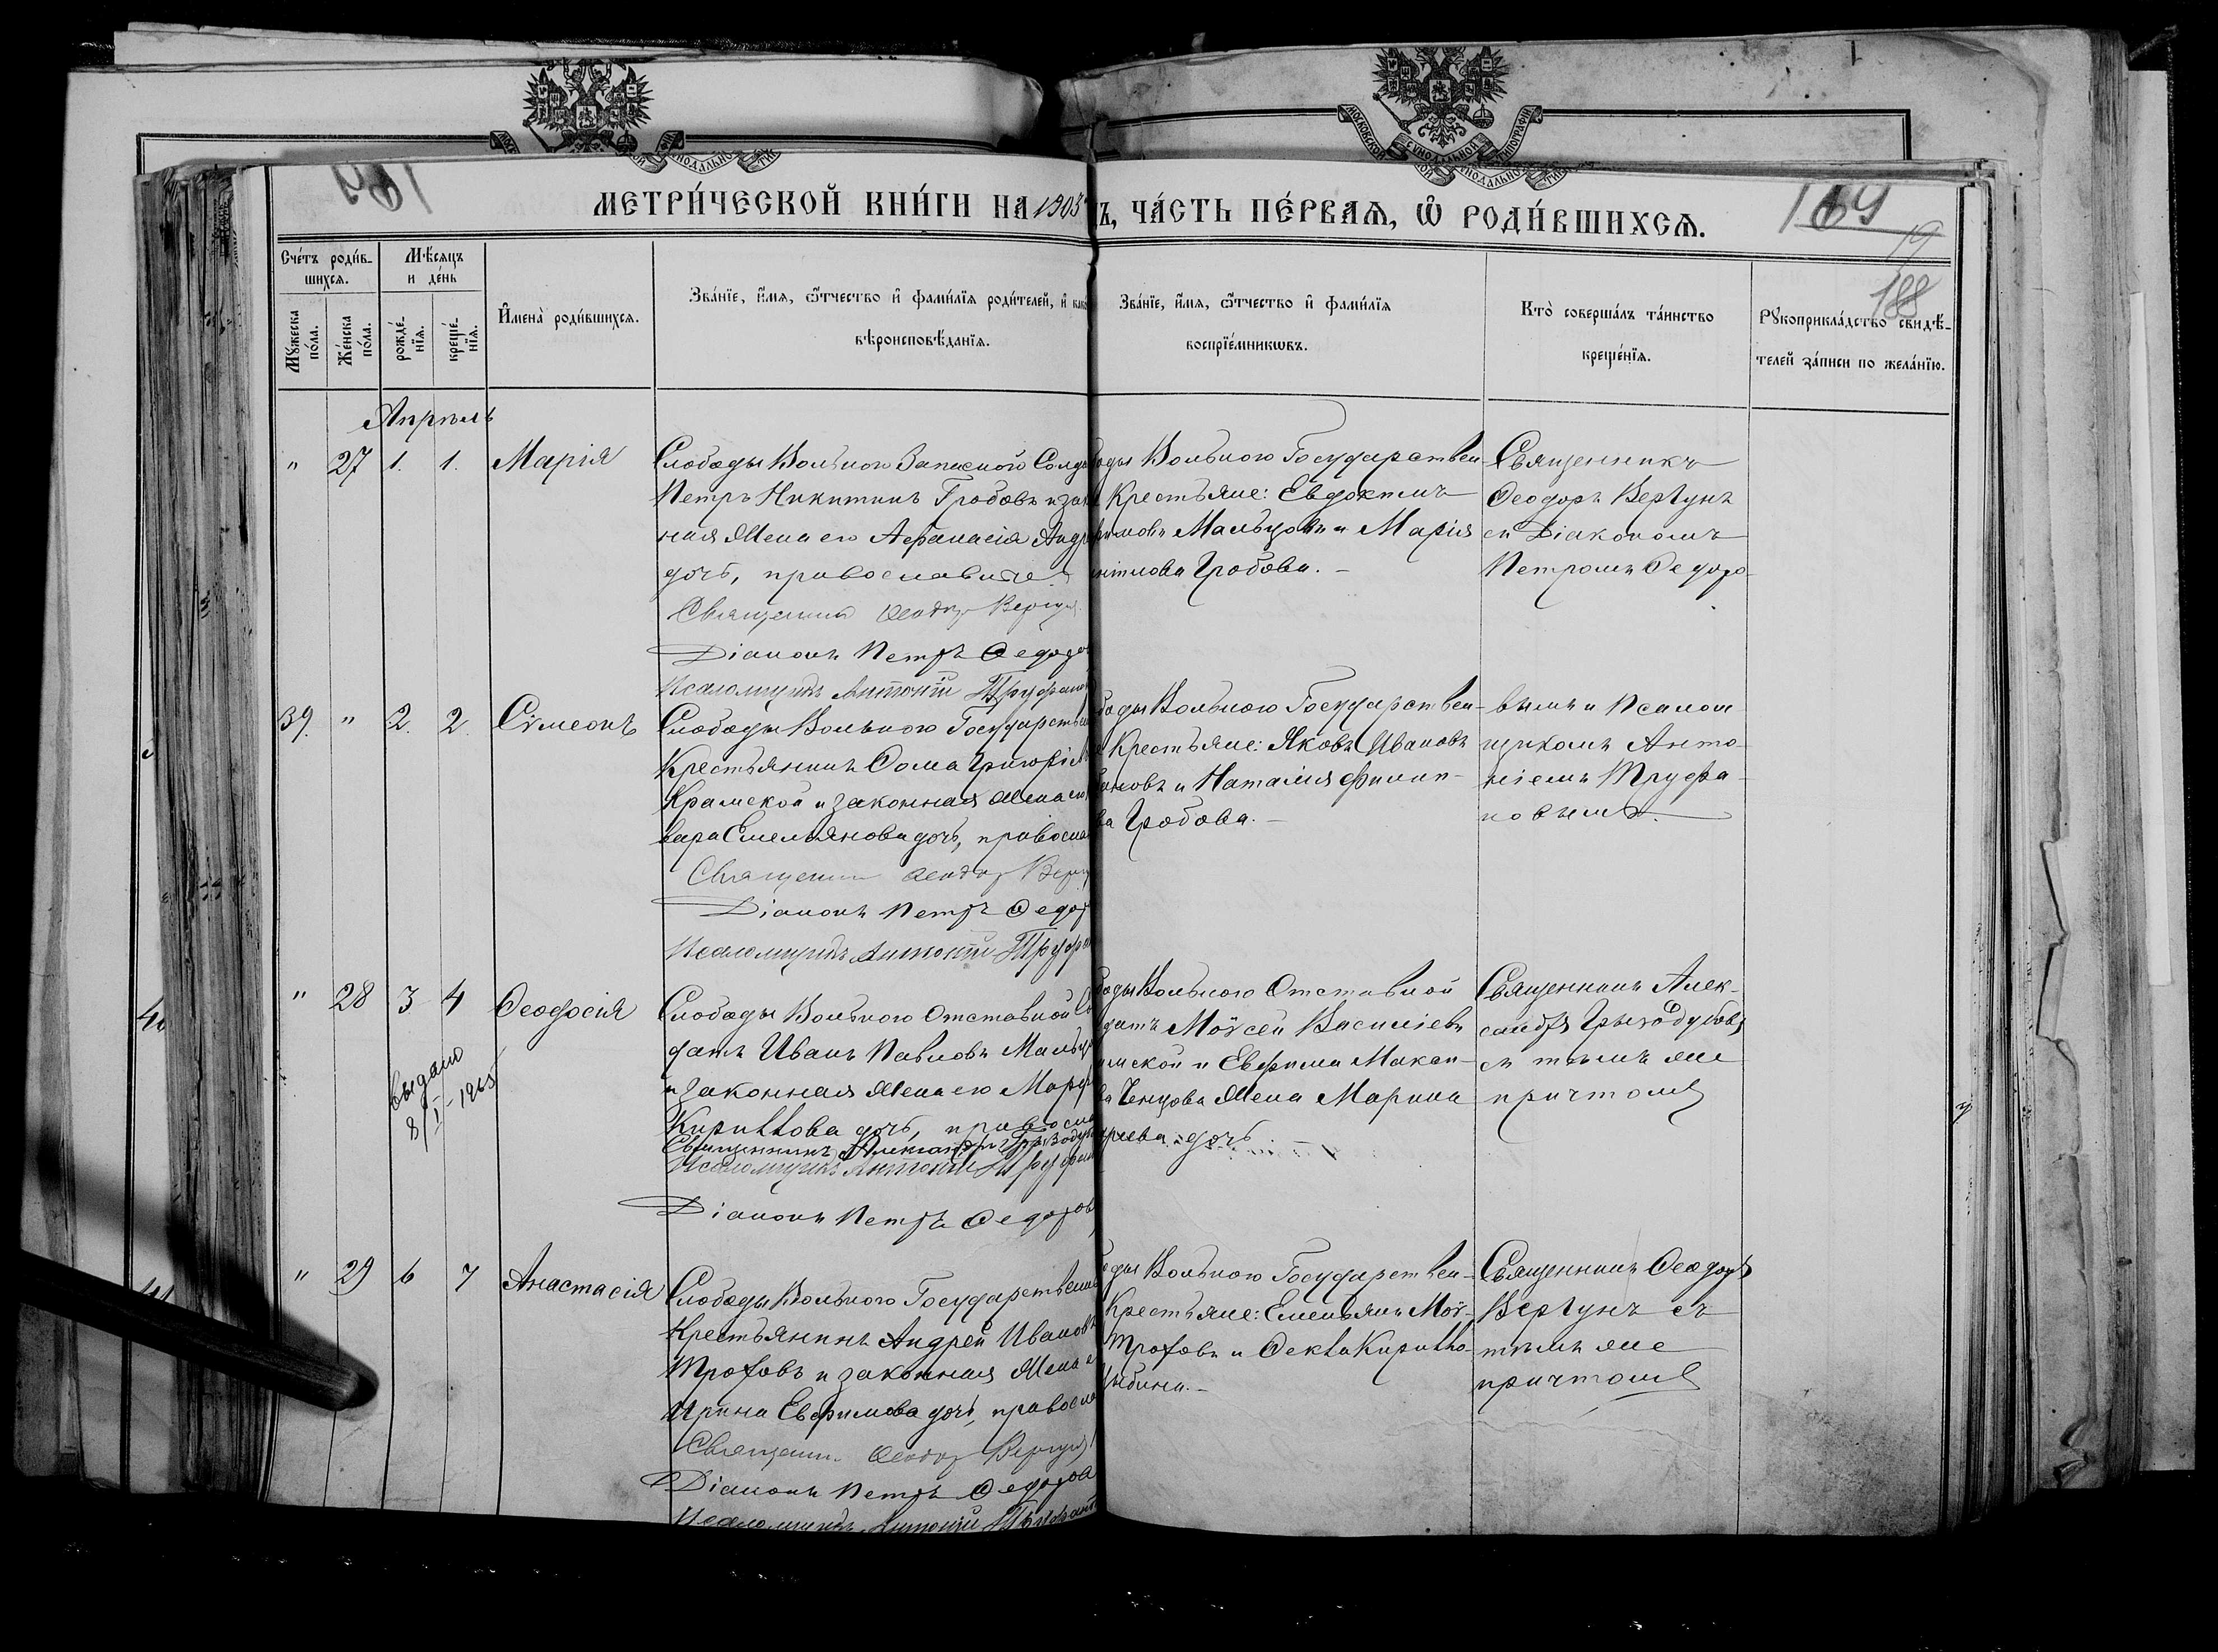 МЕТРИ́ЧЕСКОЙ КНИ́ГИ НА 1903
Ъ, ЧА́СТЬ ПЕ́РВАѦ, Ѡ҆ РОДИ́ВШИХСѦ.
169
19
188
Сче́тъ роди́в-
шихсѧ.
Мѣ́сѧцъ
и де́нь
Мꙋ́жеска
по́ла.
Же́нска
по́ла.
рожде́-
нїѧ.
креще́-
нїѧ.
И҆мена̀ роди́вшихсѧ.
Зва́нїе, и҆́мѧ, ѻ҆́тчество и҆ фамѝлїѧ роди́телей, и҆
вѣроисповѣ́данїѧ.
Зва́нїе, и҆́мѧ, ѻ҆́тчество и҆ фамѝлїѧ
воспрїе́мникѡвъ.
Кто̀ соверша́лъ та́инство
креще́нїѧ.
Рꙋкоприкла́дство свидѣ́-
телей за́писи по жела́нїю.
Апрѣль
" 27 1. 1. Марія
Слободы Вольного Запасной Солда
Петръ Никитинъ Гробовъ и зак
ная жена его Афанасія Андр
дочь, православные
Священникъ Ѳеодоръ Вергунъ
Діаконъ Петръ Ѳедоро
Псаломщикъ Антоній Труфанов
оды Вольного Государствен-
Крестьяне: Евдокимъ
имовъ Мальцовъ и Марія
Гробова.
Священникъ
Ѳеодоръ Вергунъ
съ Діакономъ
Петромъ Ѳедоро-
39. " 2. 2. Сѵмеонъ
Слободы Вольного Государствен
Крестьянинъ Ѳома Григорі
Крамской и законная жена его
вара Емельянова дочь, правосла
Священникъ Ѳеодоръ Верг
Діаконъ Петръ Ѳедор
Псаломщикъ Антоній Труфан
оды Вольного Государствен-
Крестьяне: Яковъ Ивановъ
ановъ и Наталія Филип-
ва Гробова.
вымъ и Псалом
щикомъ Анто-
ніемъ Труфа-
новымъ.
" 28 3 4 Ѳеодосія
выдано
8/I-1965
Слободы Вольного Отставной Со
датъ Иванъ Павловъ Мальц
и законная жена его Марф
Кириллова дочь, правосла
Священникъ Александръ Грызодуб
Псаломщикъ Антоній Труфан
Діаконъ Петръ Ѳедоров
оды Вольного Отставной
датъ Моѵсей Василіевъ
мской и Евфима Макси-
ва Ченцова жена Марина
рьева дочь
Священникъ Алек-
сандръ Грызодубовъ
съ тѣмъ же
причтомъ
" 29 6 7 Анастасія
Слободы Вольного Государствен
Крестьянинъ Андрей Иванов
Трофовъ и законная жена е
Ирина Евфимова дочь, правосла
Священникъ Ѳеодоръ Вергунъ
Діаконъ Петръ Ѳедоров
Псаломщикъ Антоній Труфан
оды Вольного Государствен-
Крестьяне: Емельянъ Моѵ-
Трофовъ и Ѳекла Кирилло-
Цыбина.
Священникъ Ѳеодоръ
Вергунъ съ
тѣмъ же
причтомъ